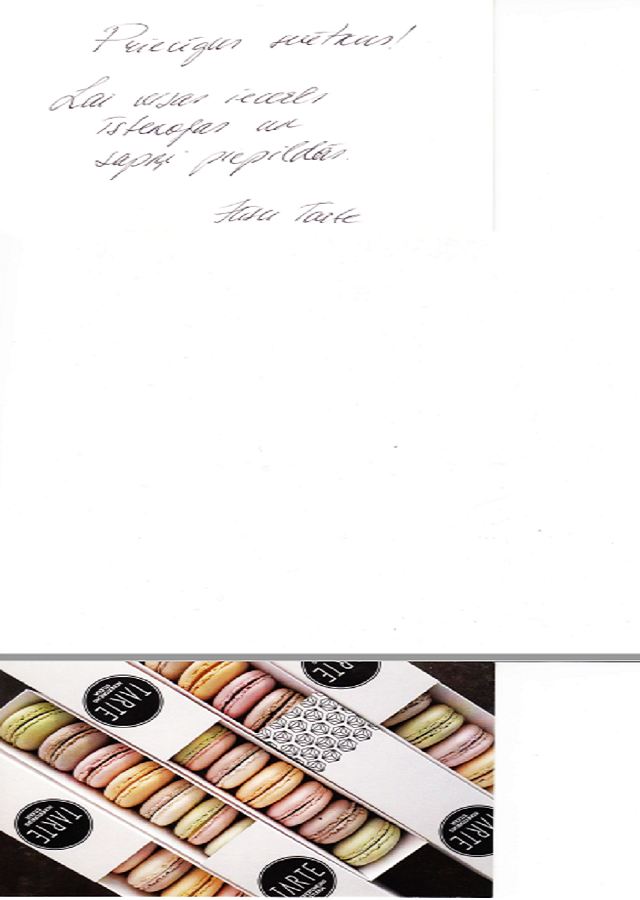 Priecīgus svētkus!
Lai visas ieceres
īstenojas un
sapņi piepildās.
Jūsu Tarte
TARTE
TARTE
TARTE
TARTE
TARTE